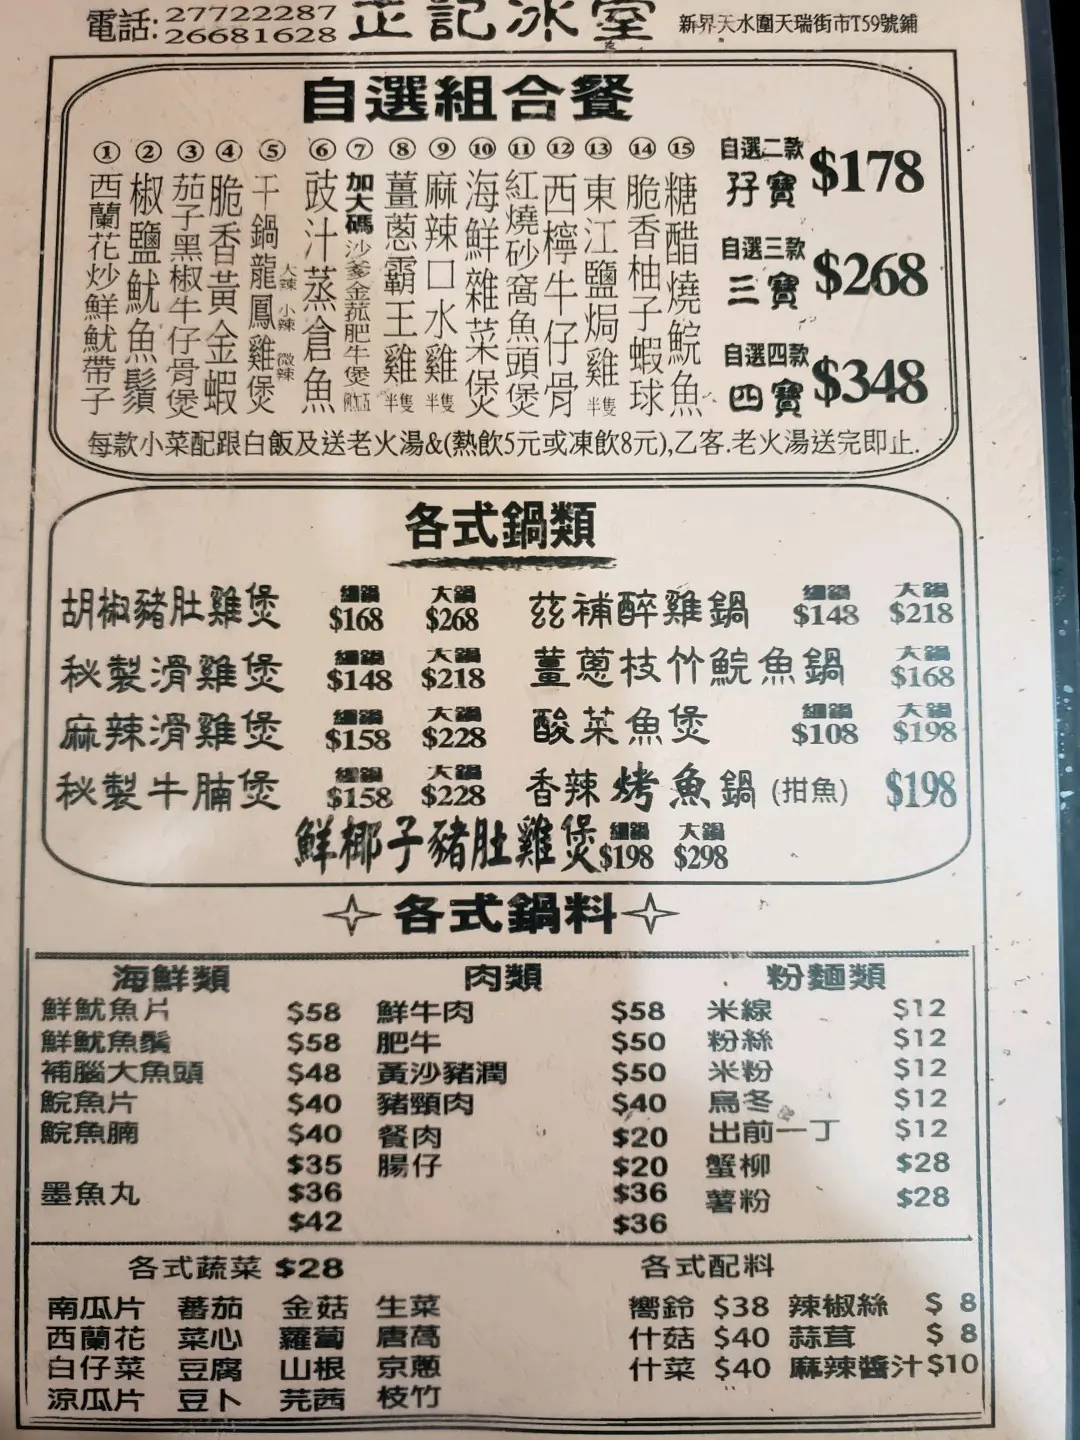 電話: 27722287
26681628
正記冰室
新界天水圍天瑞街市T59號鋪
自選組合餐
① 西蘭花炒鮮魷帶子
② 椒鹽魷魚鬚
③ 茄子黑椒牛仔骨煲
④ 脆香黃金蝦
⑤ 干鍋龍鳳雞煲 大辣 小辣 微辣
⑥ 豉汁蒸倉魚
⑦ 加大碼沙爹金菇肥牛煲
⑧ 薑蔥霸王雞半隻
⑨ 麻辣口水雞半隻
⑩ 海鮮雜菜煲
⑪ 紅燒砂窩魚頭煲
⑫ 西檸牛仔骨
⑬ 東江鹽焗雞半隻
⑭ 脆香柚子蝦球
⑮ 糖醋燒鯇魚
自選二款 孖寶 $178
自選三款 三寶 $268
自選四款 四寶 $348
每款小菜配跟白飯及送老火湯&(熱飲5元或凍飲8元),乙客.老火湯送完即止.
各式鍋類
胡椒豬肚雞煲 細鍋 $168 大鍋 $268
茲補醉雞鍋 細鍋 $148 大鍋 $218
秘製滑雞煲 細鍋 $148 大鍋 $218
薑蔥枝竹鯇魚鍋 大鍋 $168
麻辣滑雞煲 細鍋 $158 大鍋 $228
酸菜魚煲 細鍋 $108 大鍋 $198
秘製牛腩煲 細鍋 $158 大鍋 $228
香辣烤魚鍋 (拑魚) $198
鮮椰子豬肚雞煲 細鍋 $198 大鍋 $298
各式鍋料
海鮮類 肉類 粉麵類
鮮魷魚片 $58 鮮牛肉 $58 米線 $12
鮮魷魚鬚 $58 肥牛 $50 粉絲 $12
補腦大魚頭 $48 黃沙豬潤 $50 米粉 $12
鯇魚片 $40 豬頸肉 $40 烏冬 $12
鯇魚腩 $40 餐肉 $20 出前一丁 $12
$35 腸仔 $20 蟹柳 $28
墨魚丸 $36 $36 薯粉 $28
$42 $36
各式蔬菜 $28 各式配料
南瓜片 蕃茄 金菇 生菜 嚮鈴 $38 辣椒絲 $8
西蘭花 菜心 蘿蔔 唐萵 什菇 $40 蒜茸 $8
白仔菜 豆腐 山根 京蔥 什菜 $40 麻辣醬汁 $10
涼瓜片 豆卜 芫茜 枝竹